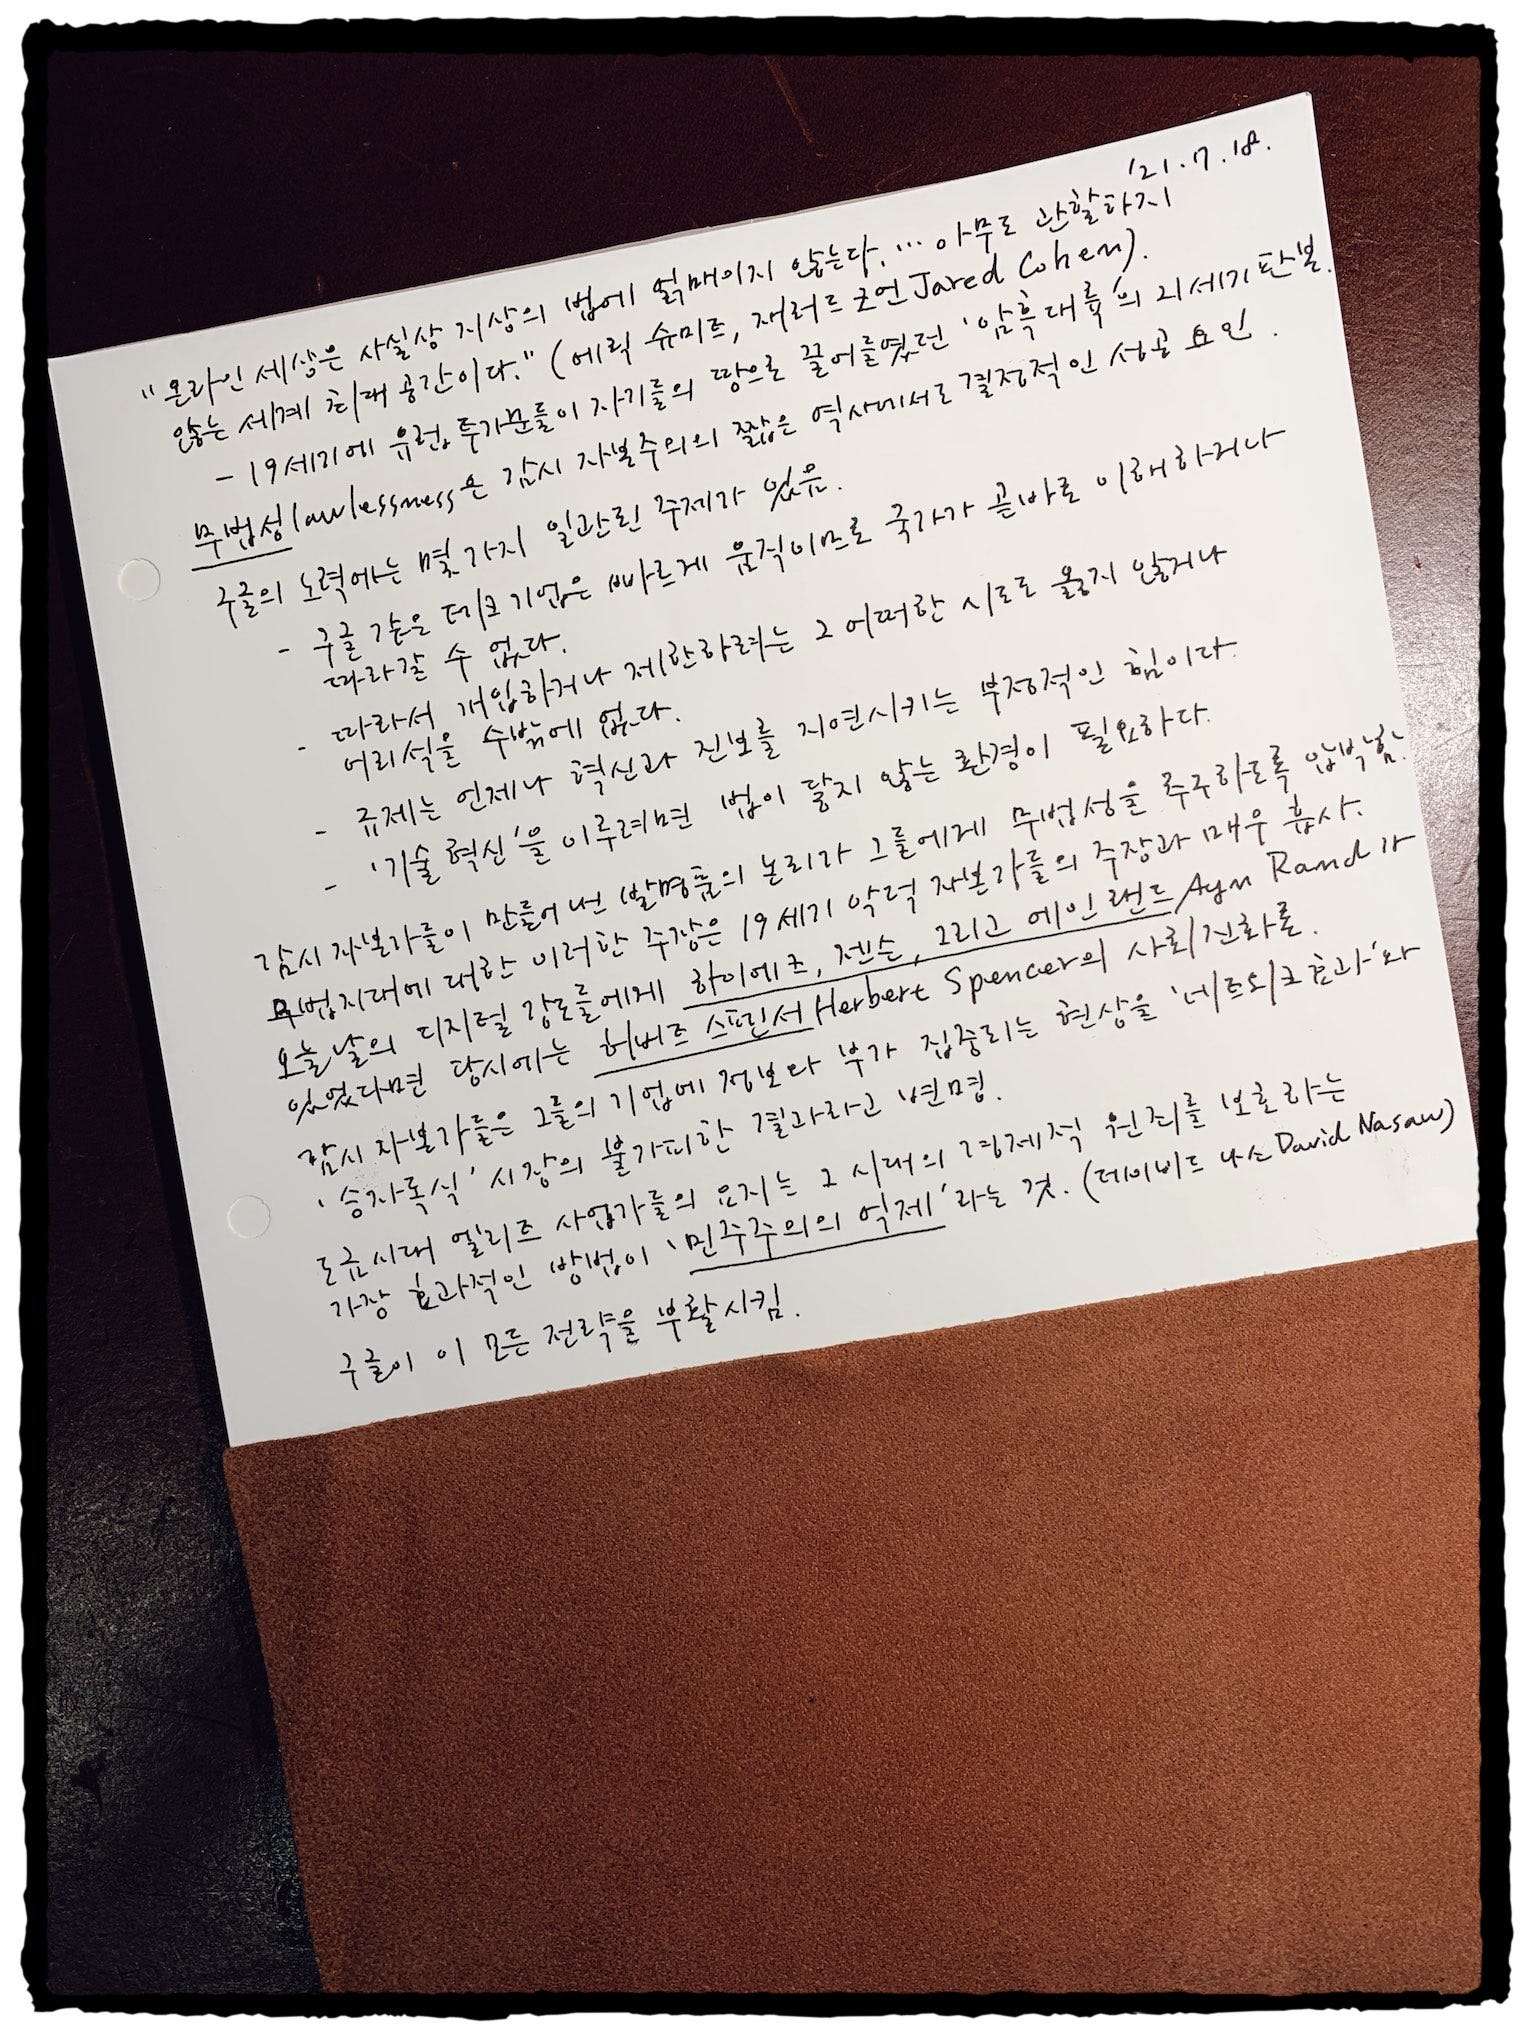 '21.7.18.
"온라인 세상은 사실상 지상의 법에 얽매이지 않는다. … 아무도 관할하지
않는 세계 최대 공간이다." (에릭 슈미트, 재러드 코언 Jared Cohen).
- 19세기에 유럽 투가꾼들이 자기들의 땅으로 끌어들였던 '암흑대륙'의 21세기 판본.
무법성lawlessness은 감시 자본주의의 짧은 역사에서도 결정적인 성공 요인.
구글의 노력에는 몇 가지 일관된 주제가 있음.
- 구글 같은 테크 기업은 빠르게 움직이므로 국가가 곧바로 이해하거나
따라갈 수 없다.
- 따라서 개입하거나 제한하려는 그 어떠한 시도도 옳지 않거나
어리석을 수밖에 없다.
- 규제는 언제나 혁신과 진보를 지연시키는 부정적인 힘이다.
- '기술 혁신'을 이루려면 법이 닿지 않는 환경이 필요하다.
감시 자본가들이 만들어 낸 발명품의 논리가 그들에게 무법성을 추구하도록 압박함.
무법지대에 대한 이러한 주장은 19세기 악덕 자본가들의 주장과 매우 흡사.
오늘날의 디지털 강도들에게 하이에크, 젠슨, 그리고 에인 랜드 Ayn Rand가
있었다면 당시에는 허버트 스펜서 Herbert Spencer의 사회진화론.
감시 자본가들은 그들의 기업에 정보와 부가 집중되는 현상을 '네트워크 효과'와
'승자독식' 시장의 불가피한 결과라고 변명.
도금시대 엘리트 사업가들의 요지는 그 시대의 경제적 원칙를 보호하는
가장 효과적인 방법이 '민주주의의 억제'라는 것. (데이비드 나소 David Nasaw)
구글이 이 모든 전략을 부활시킴.